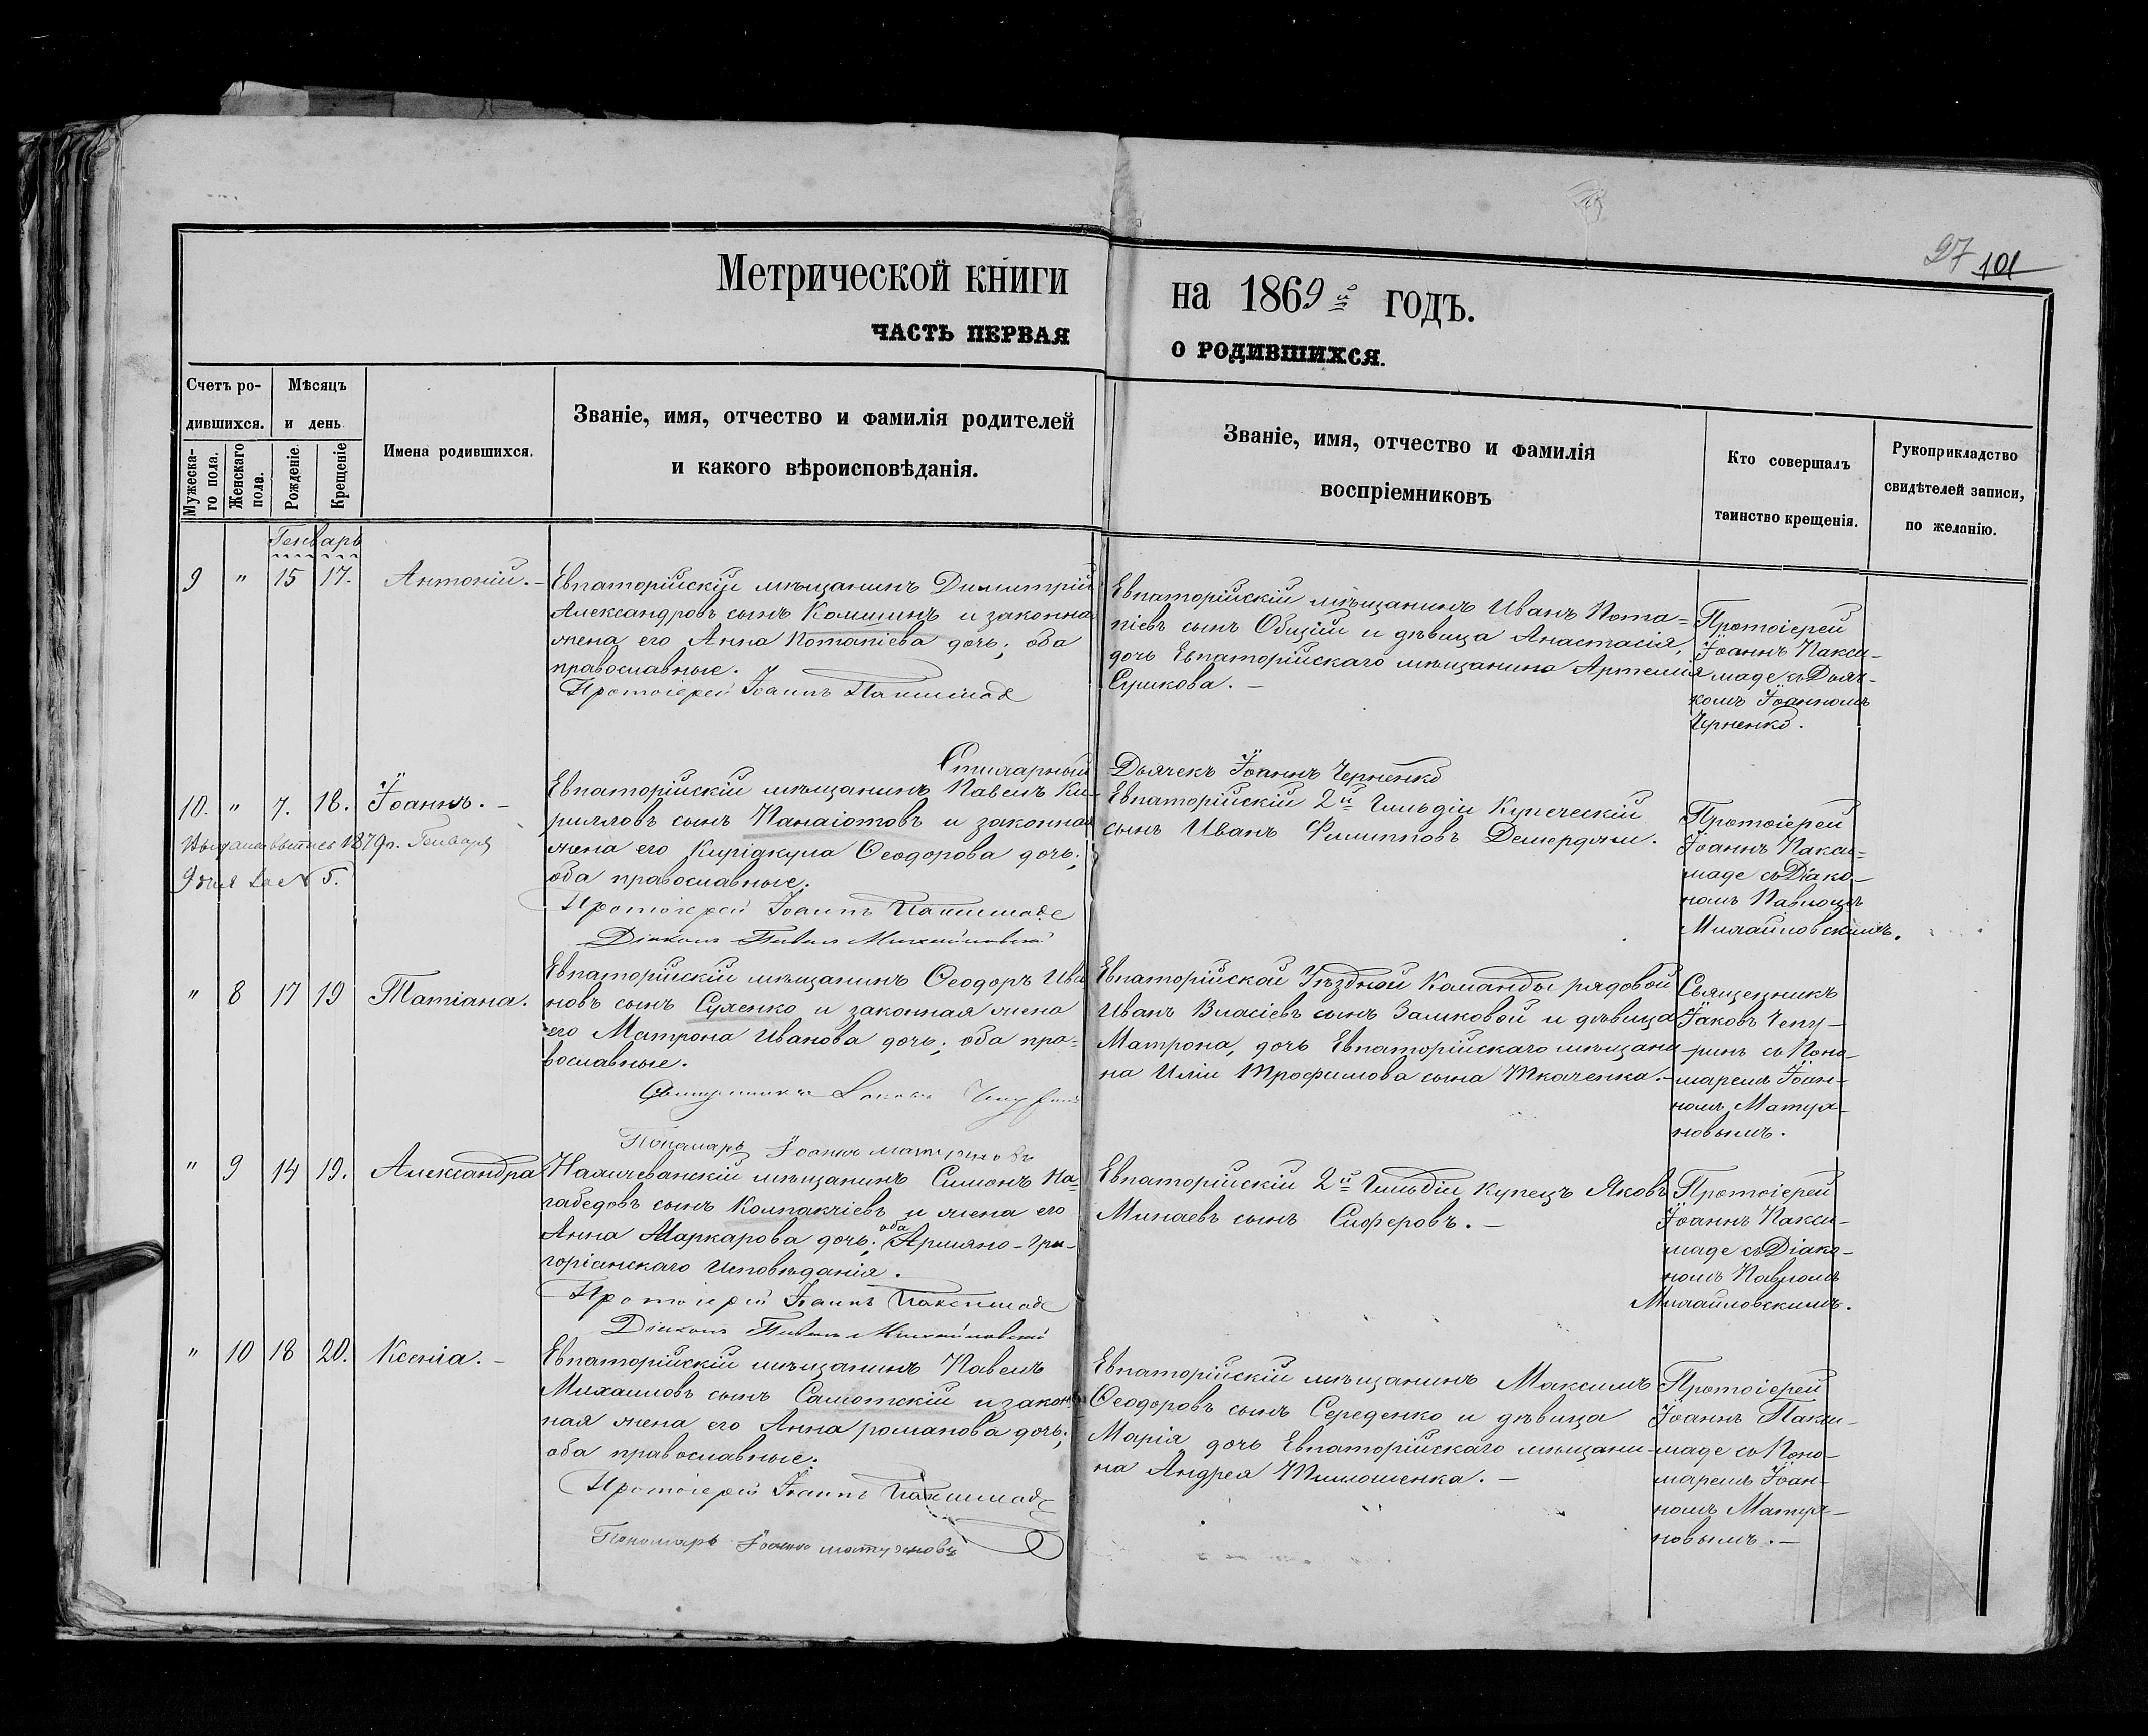 97 101
Метрической книги на 1869й годъ.
ЧАСТЬ ПЕРВАЯ О РОДИВШИХСЯ.
Счетъ ро-
дившихся.
Мѣсяцъ
и день
Мужеска-
го пола.
Женскаго
пола.
Рожденіе.
Крещеніе
Имена родившихся.
Званіе, имя, отчество и фамилія родителей
и какого вѣроисповѣданія.
Званіе, имя, отчество и фамилія
воспріемниковъ
Кто совершалъ
таинство крещенія.
Рукоприкладство
свидѣтелей записи,
по желанію.
Генварь
9 " 15 17. Антоній. –
Евпаторійскій мѣщанинъ Димитрій
Александровъ сынъ и законная
жена его Анна Потапіева дочь; оба
православные.
Протоіерей Іоаннъ Паксимаде
Евпаторійскій мѣщанинъ Иванъ Пота=
піевъ сынъ Общій и дѣвица Анастасія,
дочь Евпаторійскаго мѣщанина Артемія
Сушкова. –
Протоіерей
Іоаннъ Пакси-
маде съ Дьяч-
комъ Іоанномъ
Черненко.
10. " 7. 18. Іоаннъ. –
1879 г. Генваря
9 дня за № 5.
Евпаторійскій мѣщанинъ Павелъ Ки-
рилловъ сынъ Панаіотовъ и законная
жена его Киріакула Ѳеодорова дочь;
оба православные.
Протоіерей Іоаннъ Паксимаде
Діаконъ Павелъ Михайловскій
Дьячекъ Іоаннъ Черненко
Евпаторійскій 2й Гильдіи Купеческій
сынъ Иванъ Филипповъ Демерджи.
Протоіерей
Іоаннъ Пакси=
маде съ Діако-
номъ Павломъ
Михайловскимъ.
" 8 17 19 Татіана.
Евпаторійскій мѣщанинъ Ѳеодоръ Ива
новъ сынъ Сухенко и законная жена
его Матрона Иванова дочь; оба пра=
вославные.
Священникъ Іаковъ Чепуринъ
Пономарь Іоаннъ Матуяновъ
Евпаторійской Уѣздной Команды рядовой
Иванъ Власіевъ сынъ Замковой и дѣвица
Матрона, дочь Евпаторійскаго мѣщани
на Иліи Трофимова сына Ткаченка. –
Священникъ
Іаковъ Чепу-
ринъ съ Поно-
маремъ Іоан-
номъ Матуя-
новымъ.
" 9 14 19. Александра
Нахичеванскій мѣщанинъ Симонъ Ка=
рабедовъ сынъ Колпакчіевъ и жена его
Анна Маркарова дочь; оба Армяно-Гри-
горіанскаго Исповѣданія.
Протоіерей Іоаннъ Паксимаде
Діаконъ Павелъ Михайловскій
Евпаторійскій 2й Гильдіи купецъ Яковъ
Минаевъ сынъ Сиферовъ. –
Протоіерей
Іоаннъ Пакси-
маде съ Діако-
номъ Павломъ
Михайловскимъ.
" 10 18 20. Ксенія. –
Евпаторійскій мѣщанинъ Павелъ
Михаиловъ сынъ и закон=
ная жена его Анна Романова дочь;
оба православные.
Протоіерей Іоаннъ Паксимаде
Пономарь Іоаннъ Матуяновъ
Евпаторійскій мѣщанинъ Максимъ
Ѳеодоровъ сынъ Середенко и дѣвица
Марія дочь Евпаторійскаго мѣщани-
на Андрея Тимошенка. –
Протоіерей
Іоаннъ Пакси-
маде съ Поно-
маремъ Іоан-
номъ Матуя-
новымъ. –